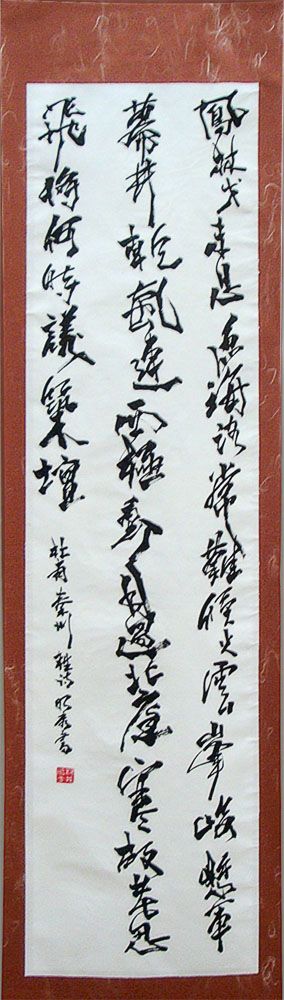 鳳林戈未息魚海路常難候火雲峯峻懸軍
幕井乾風連西極動月過北庭寒故老思
飛將何時議築壇
杜甫秦州雜詩 書